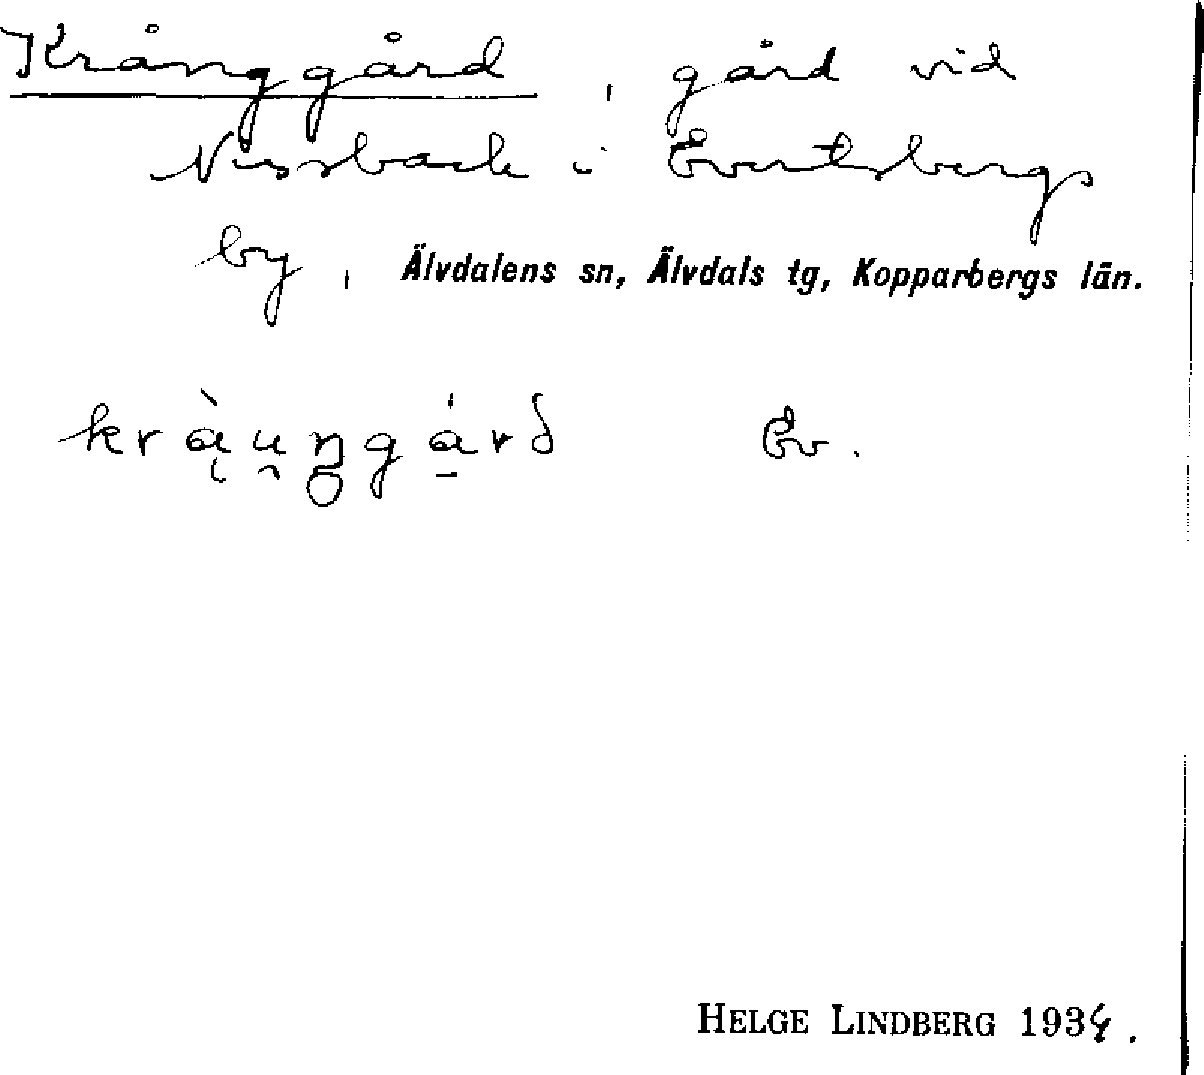 Krånggård, gård vid
Nissback i Evertsbergs
by, Älvdalens sn, Älvdals tg, Kopparbergs län.
krą̀u̯ŋgá̠rδ Ev.
HELGE LINDBERG 1934.